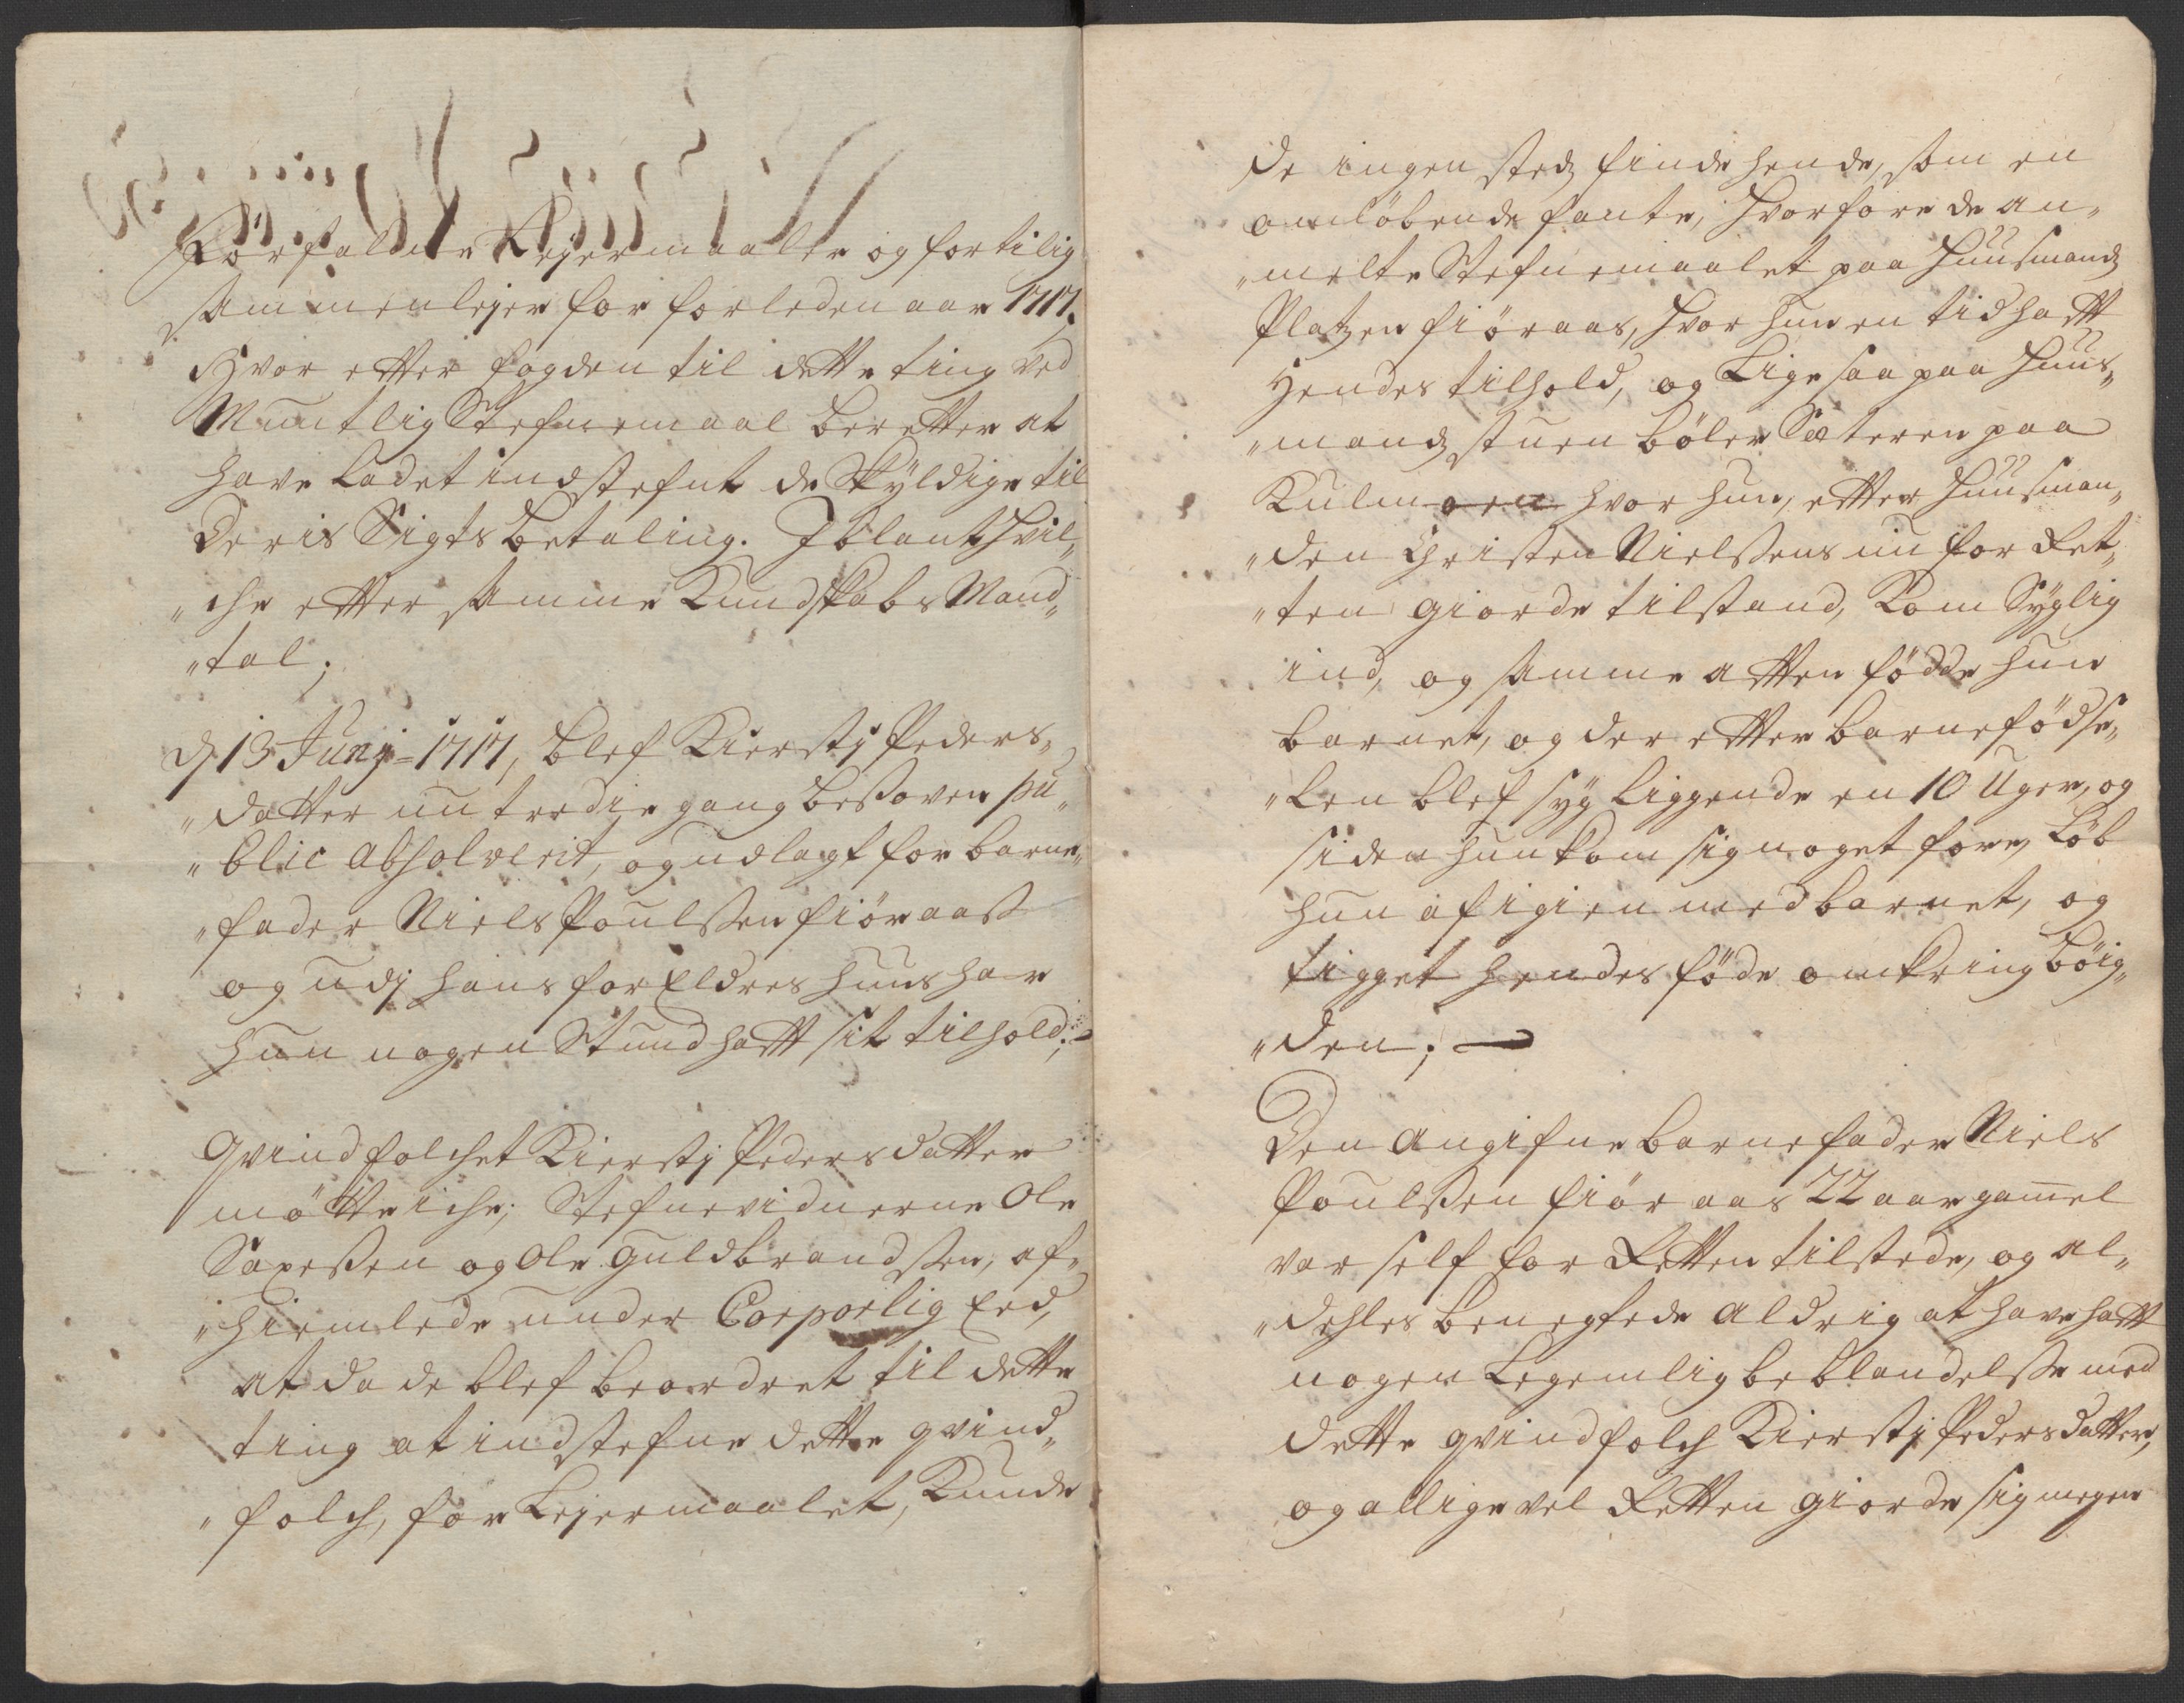 Forfaldne Lejermaaler og for tilig
sammenlejer for forleden aar 1717.
Hvor etter fogden til dette ting ved
Muntlig Stefnemaal beretter at
have Ladet indstefnt de Skÿldige til
deris Sigts betaling. Iblant hvil„
„che etter samme Kundskabs Mand„
„tal;
d 13 Junj = 1717, blef Kierstj Peders„
„datter nu tredie gang besoven pu„
„blic absolverit, og udlagt for barne„
„fader Niels Poulsen fiöraas
og udj hans for Eldres huus har
hun nogen Stund hafft sit tilhold;
Qvindfolchet Kierstj Pedersdatter
mötte iche; Stefnevidnerne Ole
Saxesen og Ole Guldbrandsen, af„
„hiemlede under Corporlig Eed,
at da de blef beordret til dette
ting at indstefne dette qvind„
„folch, for Lejermaalet, Kunde
de ingen steds finde hende, som en
omlöbende fante, hvorfore de an„
„melte Stefnemaalet paa Huusmands
Platzen fiöraas, hvor hun en tid hafft
hendes tilhold, og Ligesaa paa Huus„
„mands stuen böler Sæteren paa
Kulmoen hvor hun, etter Huusman„
„den Christen Nielsens nu for Ret„
„ten giorde tilstand, Kom Sÿglig
ind, og samme atten födde hun
barnet, og der etter barnefödse„
„len blef sÿg Liggende en 10 Uger, og
siden hun kom sig noget fore, Löb
hun af igien med barnet, og
tigget hendes föde omkring böig„
„den;
Den angifne barnefader Niels
Poulsen fiöraas 22 aar gamel
var self for Retten tilstede, og al„
„dehles benegtede aldrig at have hafft
nogen Legemlig beblandelse med
dette qvindfolch Kierstj Pedersdatter,
og alligevel Retten giorde sig megen